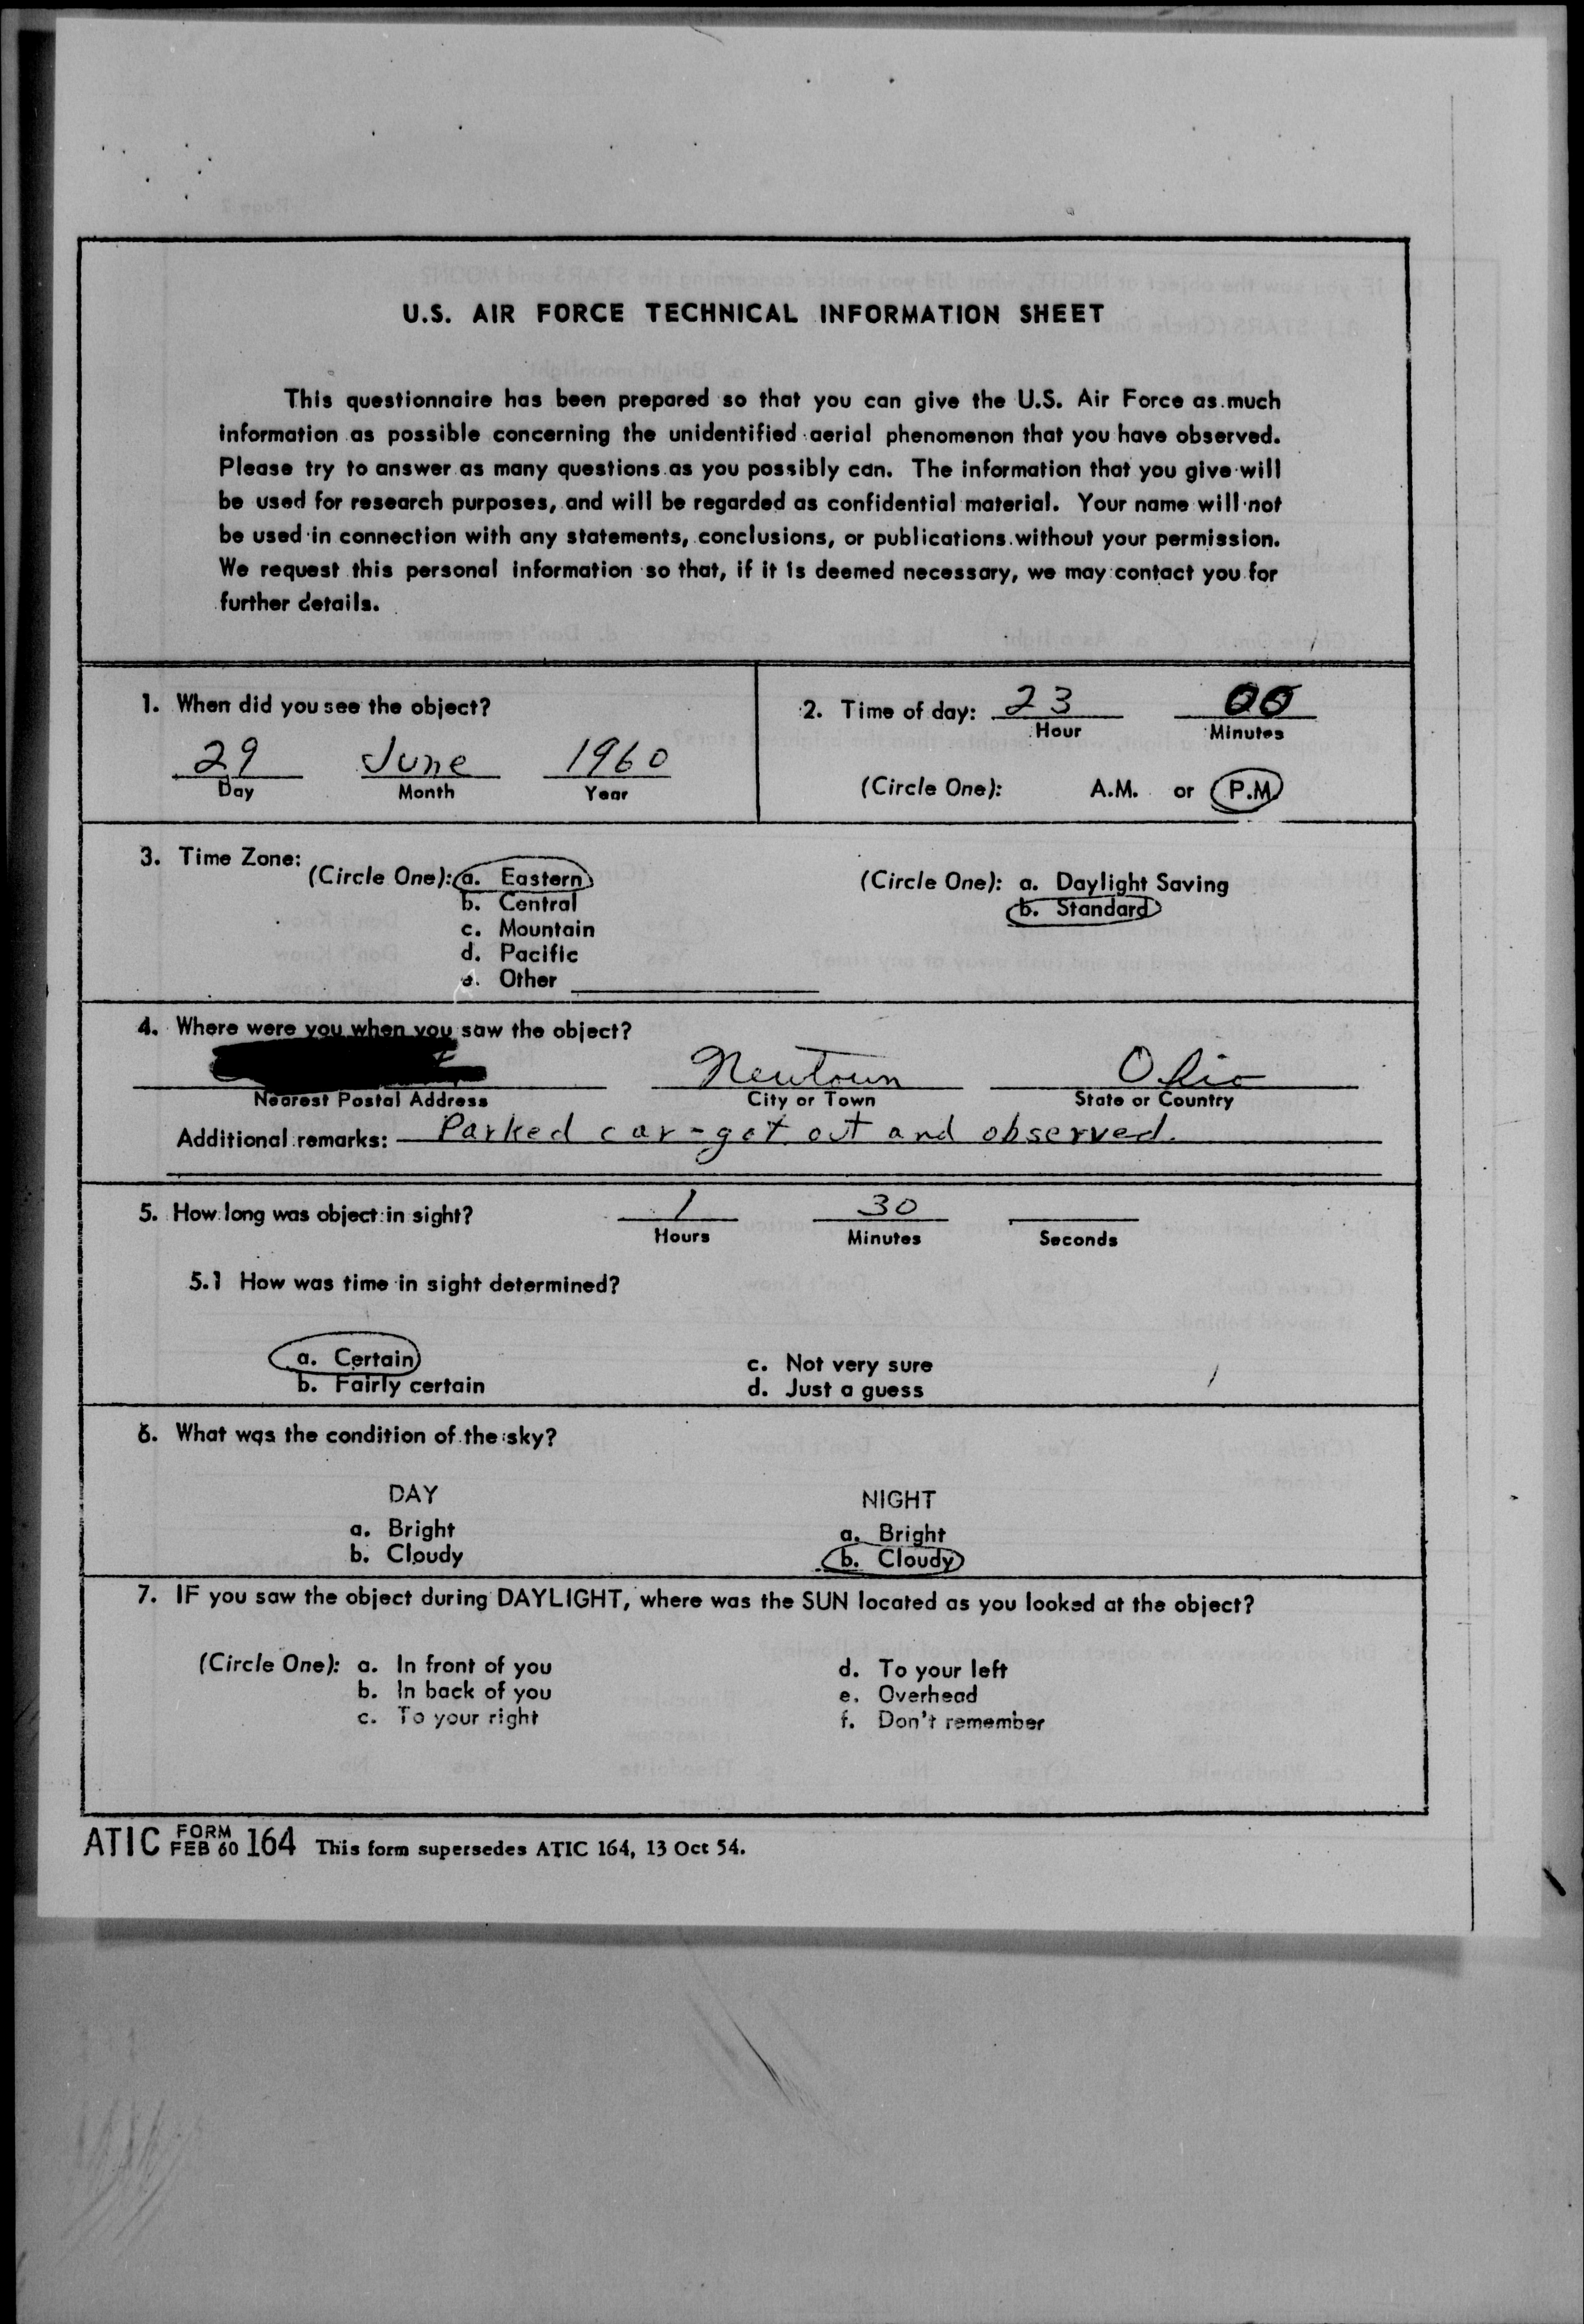 U.S. AIR FORCE TECHNICAL INFORMATION SHEET
This questionnaire has been prepared so that you can give the U.S. Air Force as much
information as possible concerning the unidentified aerial phenomenon that you have observed.
Please try to answer as many questions as you possibly can. The information that you give will
be used for research purposes, and will be regarded as confidential material. Your name will not
be used in connection with any statements, conclusions, or publications without your permission.
We request this personal information so that, if it is deemed necessary, we may contact you for
further details.
1. When did you see the object?
29 June 1960
Day Month Year
2. Time of day: 23 00
Hour Minutes
(Circle One): A.M. or P.M.
3. Time Zone:
(Circle One): a. Eastern
b. Central
c. Mountain
d. Pacific
e. Other
(Circle One): a. Daylight Saving
b. Standard
4. Where were you when you saw the object?
Newtown Ohio
Nearest Postal Address City or Town State or Country
Additional remarks: Parked car - got out and observed.
5. How long was object in sight? 1 30
Hours Minutes Seconds
5.1 How was time in sight determined?
a. Certain c. Not very sure
b. Fairly certain d. Just a guess
6. What was the condition of the sky?
DAY NIGHT
a. Bright a. Bright
b. Cloudy b. Cloudy
7. IF you saw the object during DAYLIGHT, where was the SUN located as you looked at the object?
(Circle One): a. In front of you d. To your left
b. In back of you e. Overhead
c. To your right f. Don't remember
ATIC FORM FEB 60 164 This form supersedes ATIC 164, 13 Oct 54.